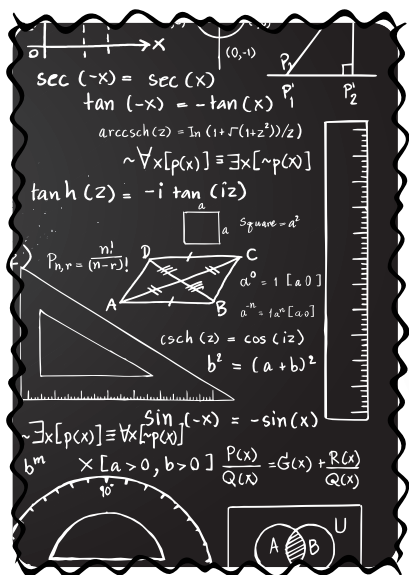 0
x
(0,-1)
P₁
P'₁
P'₂
sec (-x) = sec (x)
tan (-x) = -tan(x)
arccsch(z) = In (1+√(1+z²))/z)
~∀x[p(x)] ≡ ∃x[~p(x)]
tanh(z) = -i tan (iz)
a
a
square = a²
Pn,r = n!/(n-r)!
D
C
A
B
a⁰ = 1 [a 0]
a⁻ⁿ = 1aⁿ [a 0]
csch (z) = cos (iz)
b² = (a+b)²
sin (-x) = -sin(x)
~∃x[p(x)] ≡ ∀x[~p(x)]
bᵐ
x[a>0, b>0]
P(x)/Q(x) = G(x) + R(x)/Q(x)
90°
U
A
B